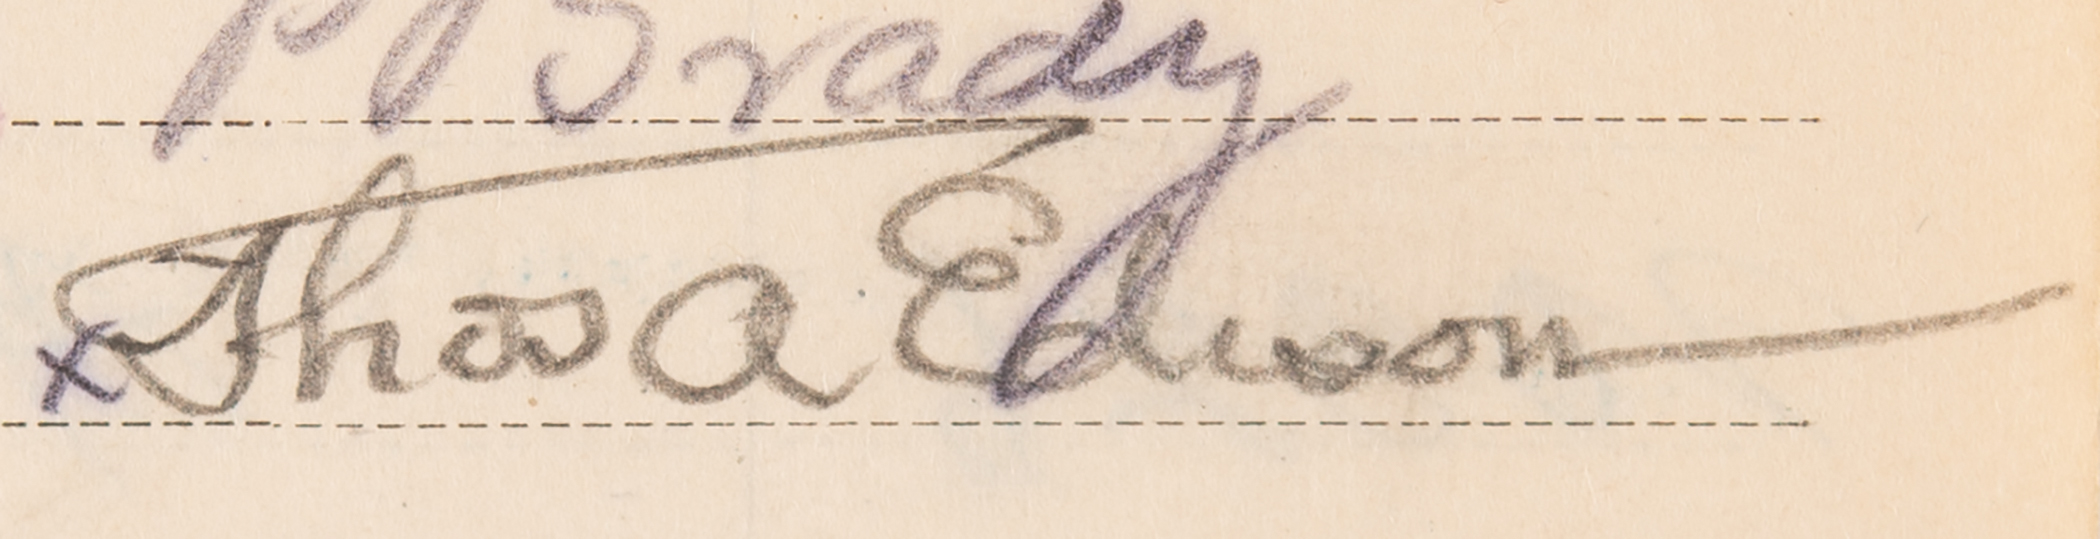 P Brady
x Thos A Edison